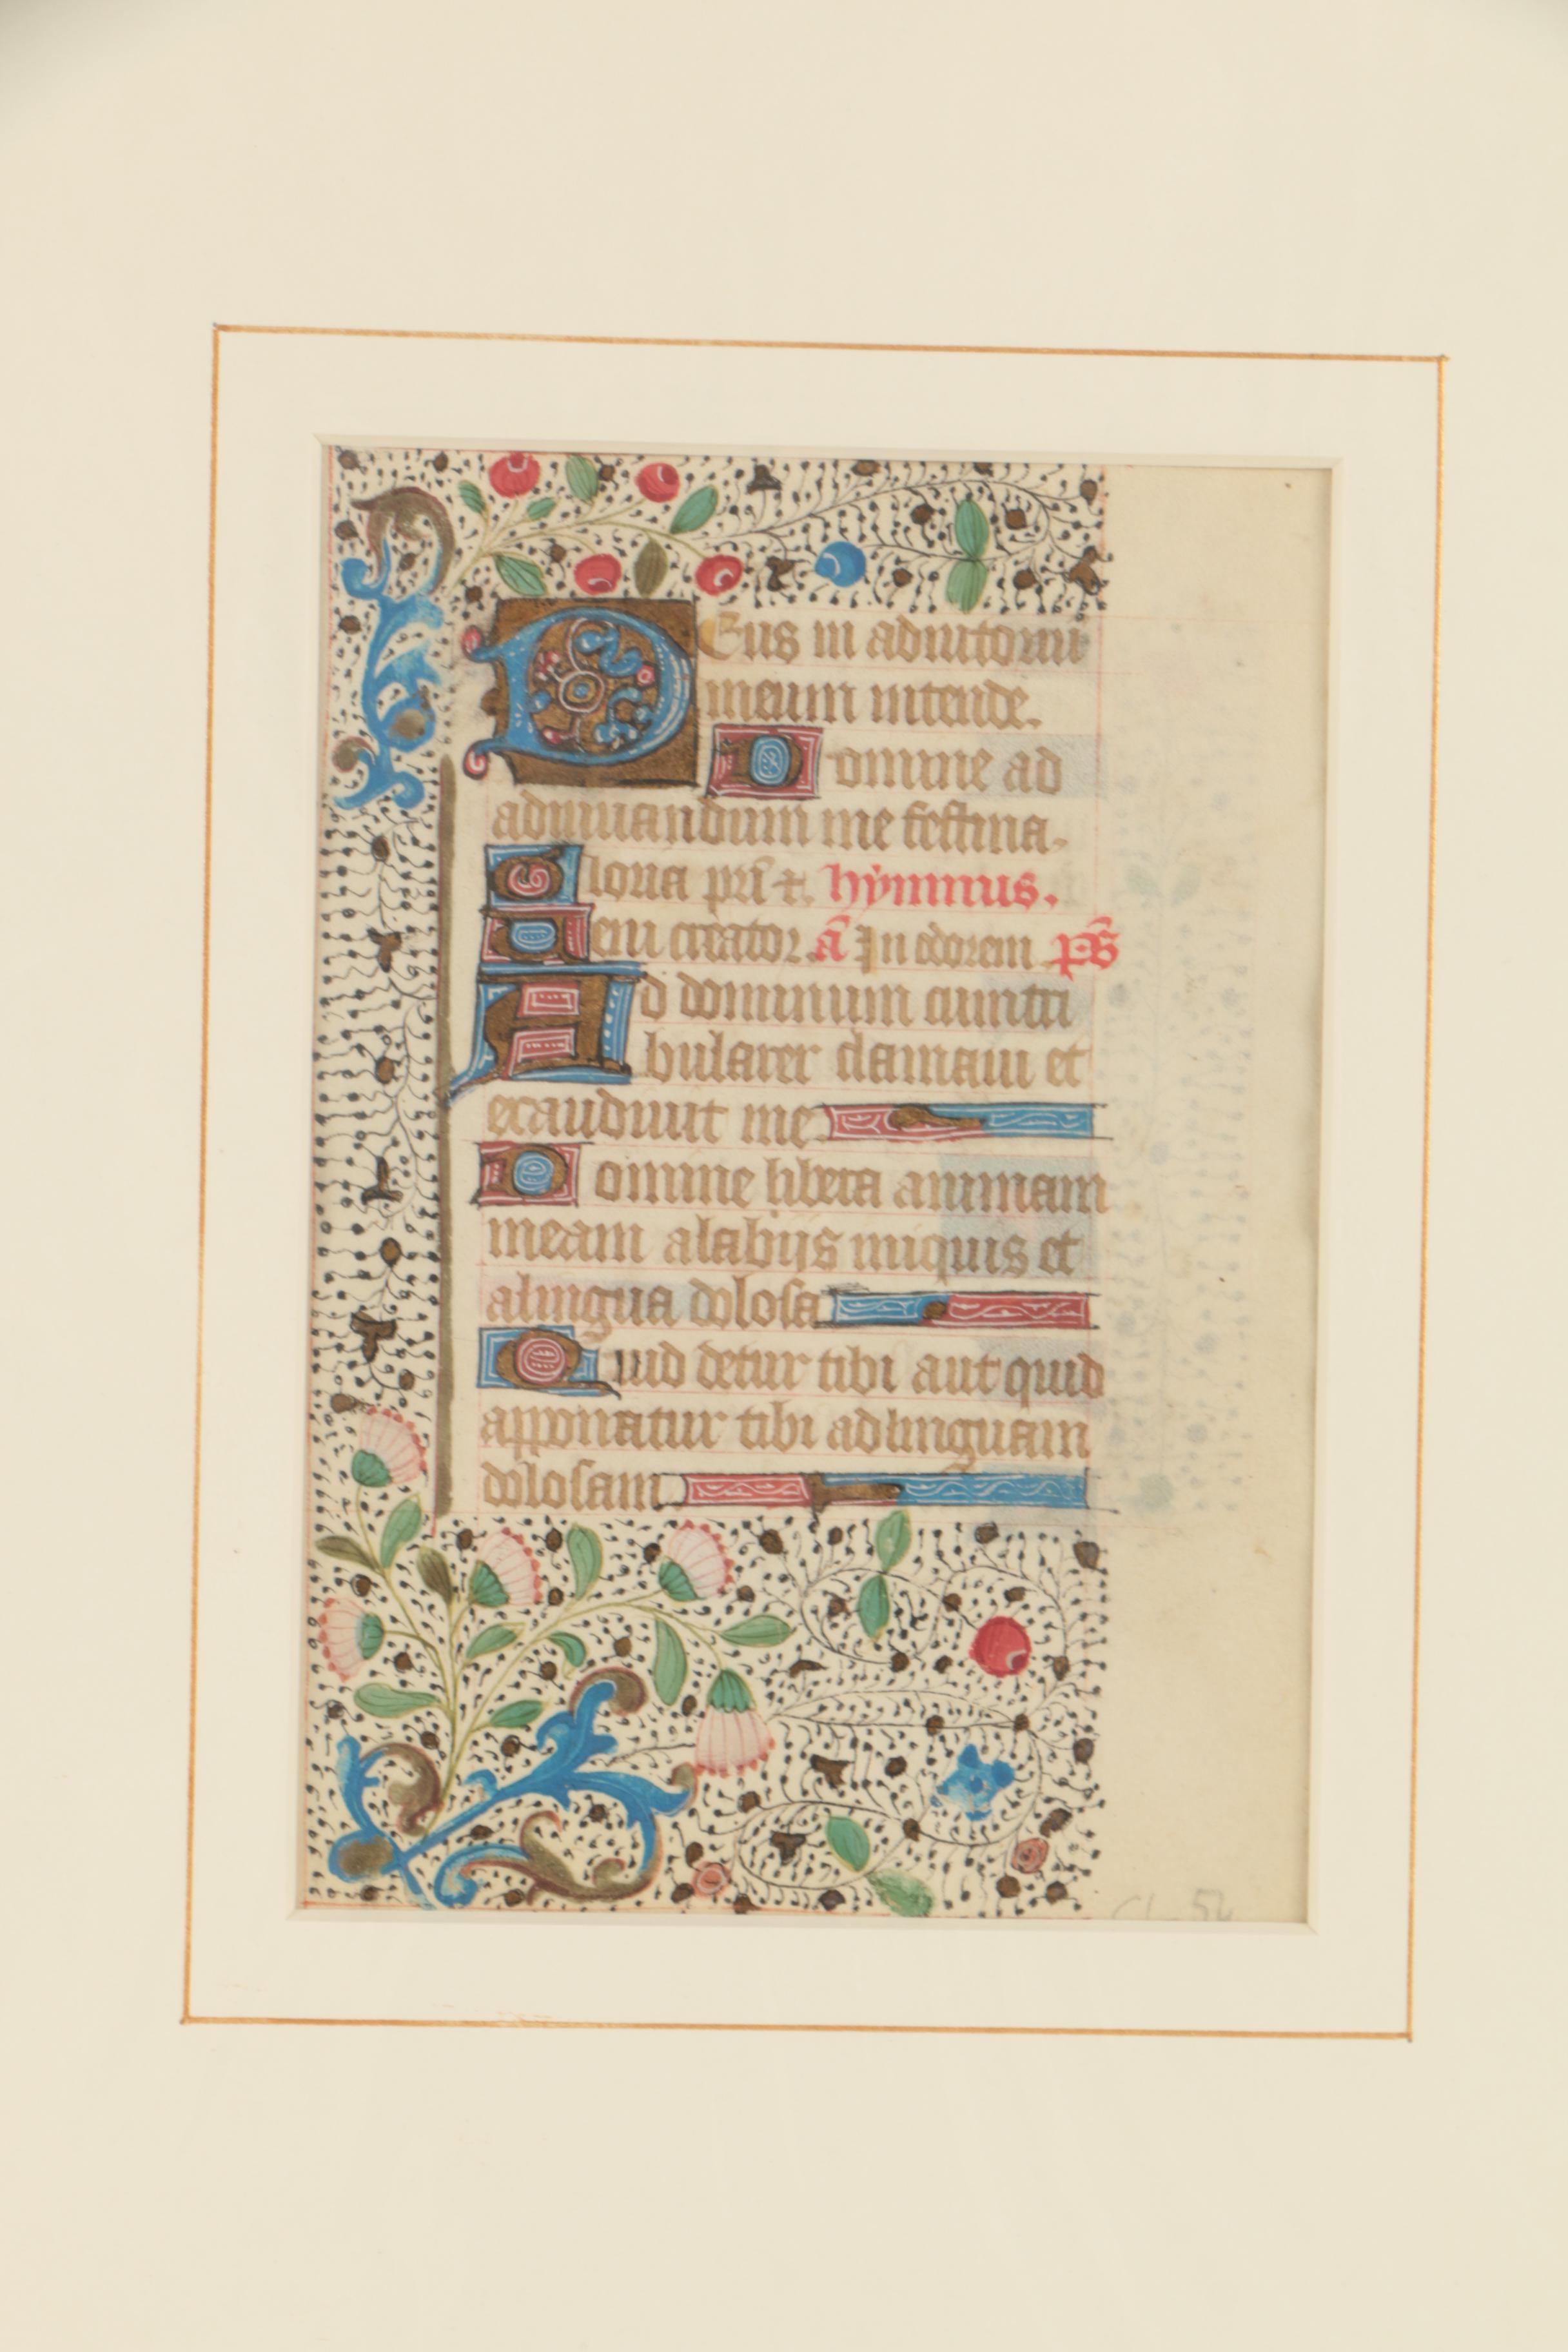 Deus in adiutoriū
meum intende.
Domine ad
adiuuandum me festina.
Gloria pr̄i ⁊. hymnus.
Veni creator. a᷍ In odorem p̄s
Ad dominum cum tri
bularer clamaui et
exaudiuit me.
Domine libera animam
meam alabijs iniquis et
alingua dolosa
Quid detur tibi aut quid
apponatur tibi adlinguam
dolosam.